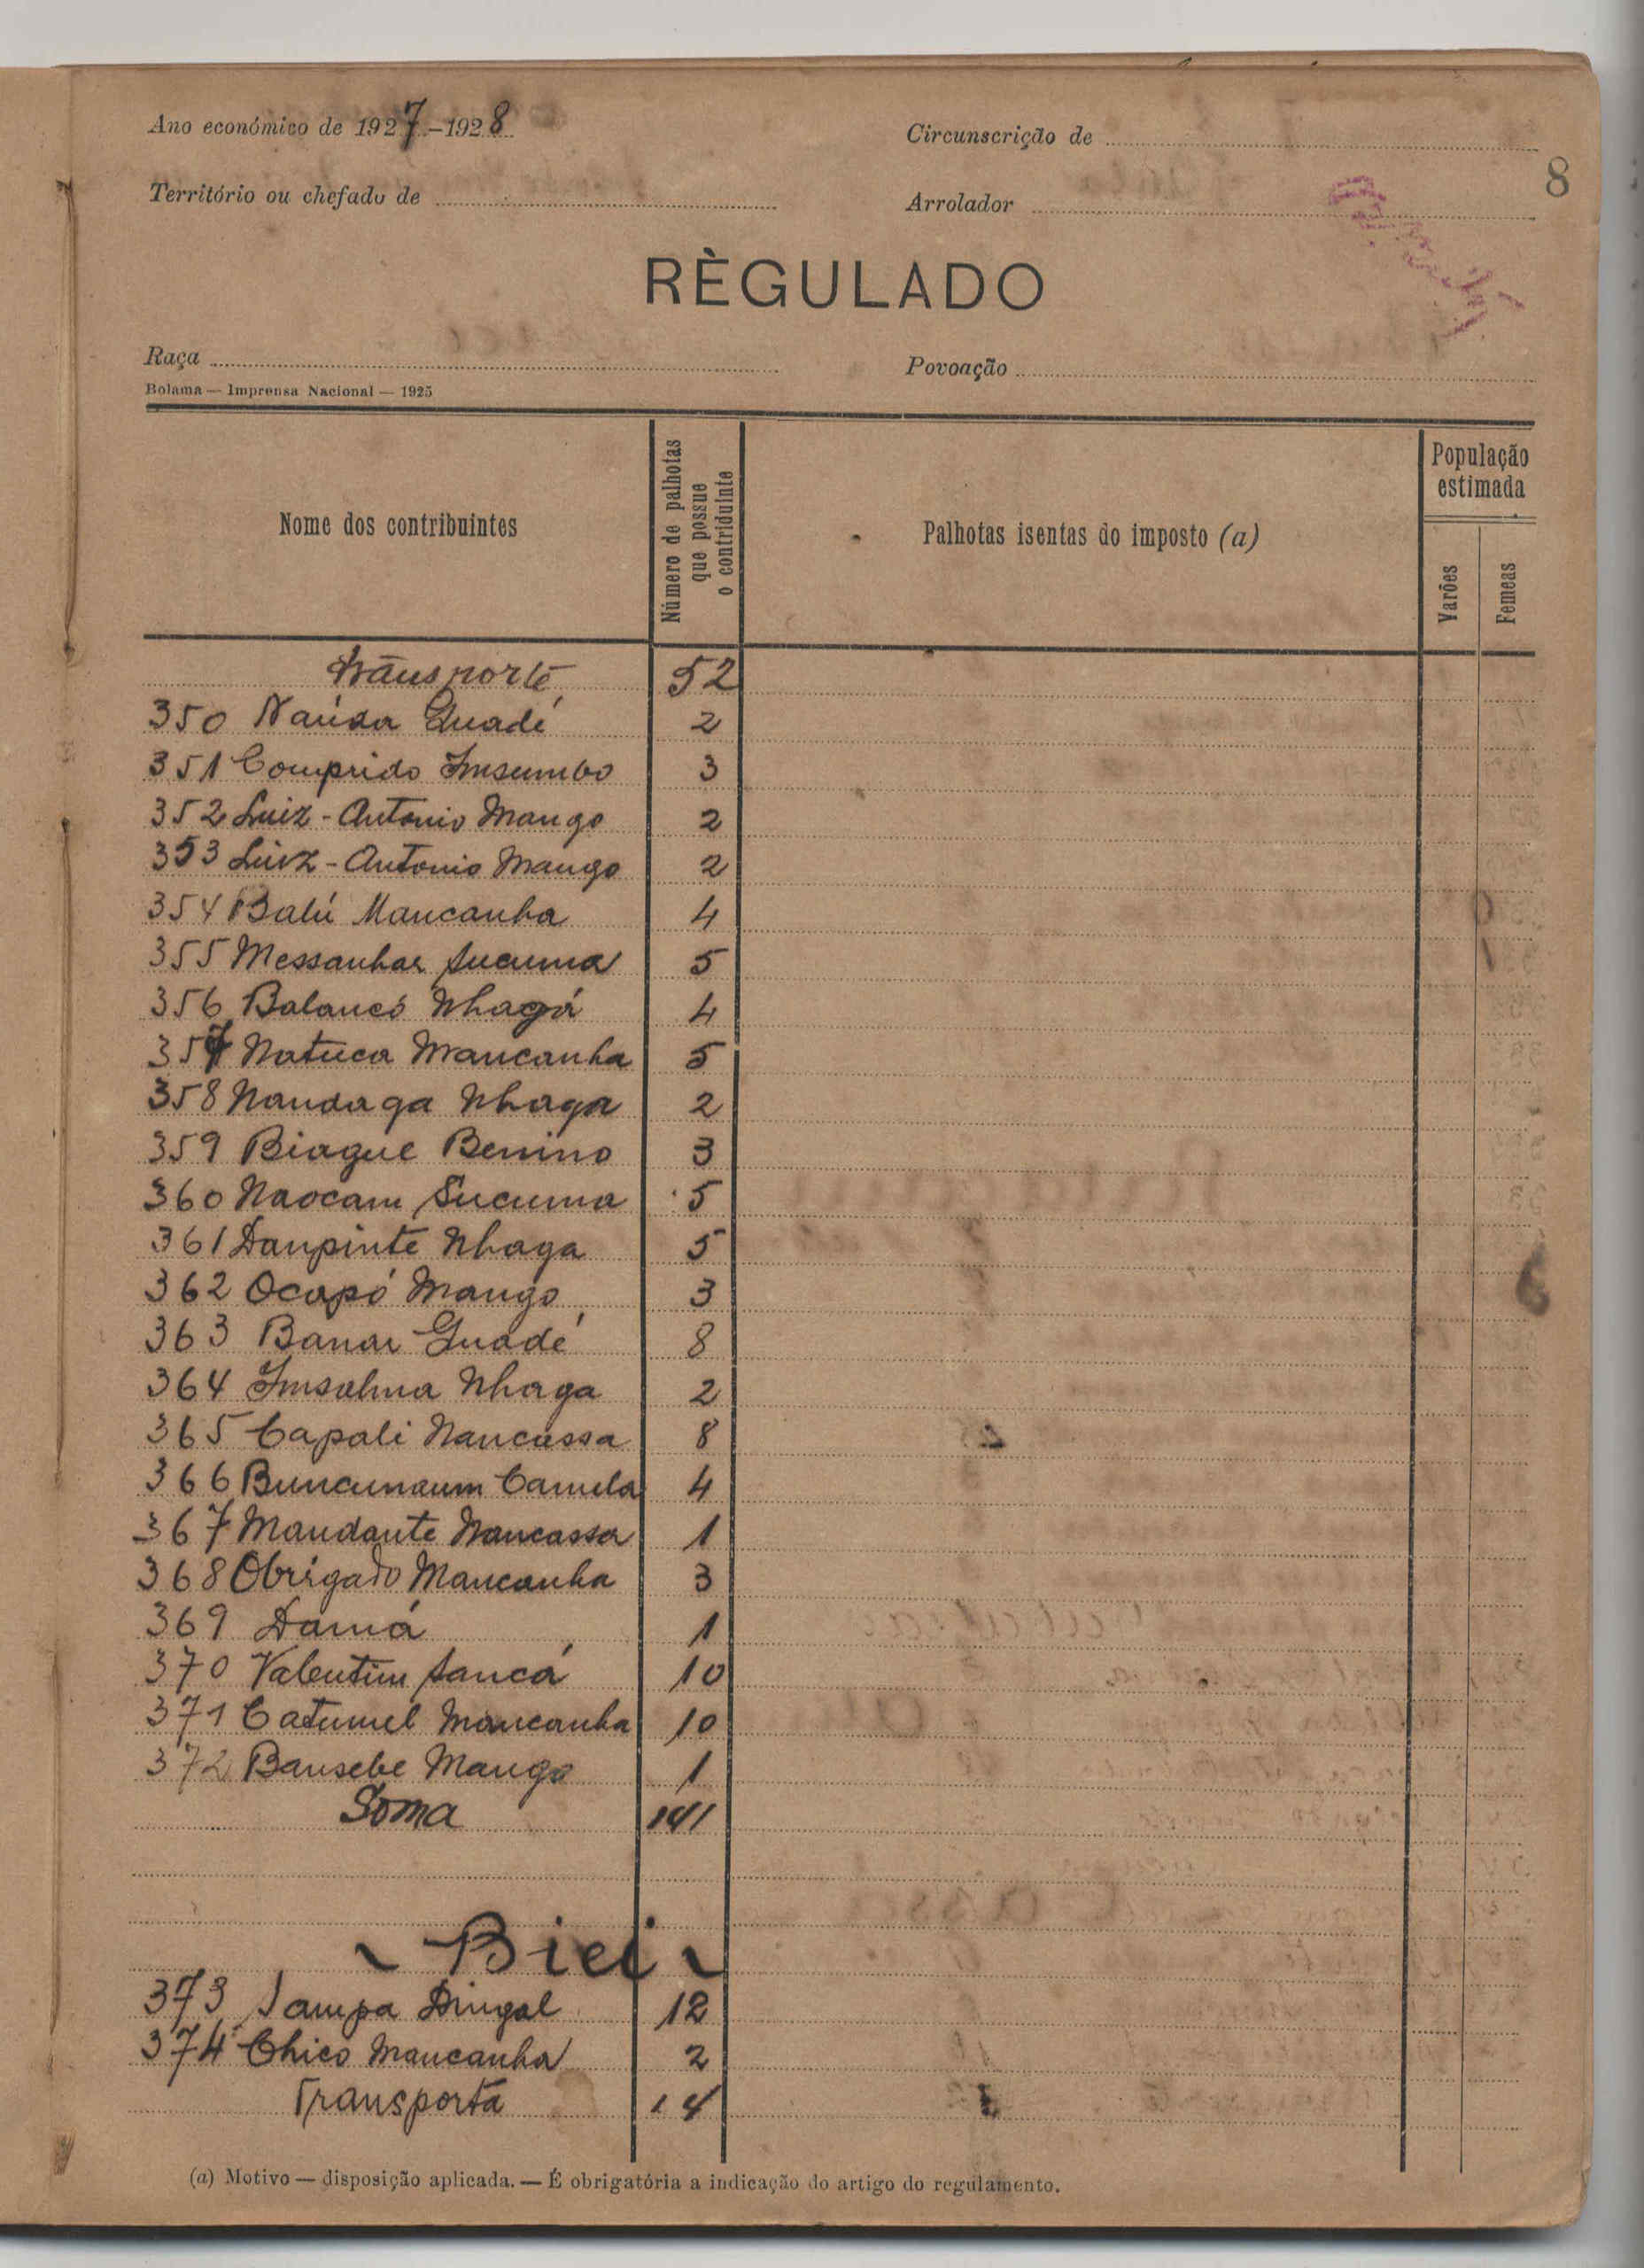 Ano económico de 1927-1928
Circunscrição de
8
Território ou chefado de
Arrolador
RÈGULADO
Raça
Povoação
Bolama — Imprensa Nacional — 1925
Nome dos contribuintes
Número de palhotas que possue o contriduinte
Palhotas isentas do imposto (a)
População estimada
Varões
Femeas
Transporte 52
350 Naúda Guadé 2
351 Comprido Insumbo 3
352 Luiz - Antonio Mango 2
353 Luiz - Antonio Mango 2
354 Balú Mancanha 4
355 Messanhar Sucuma 5
356 Balancó Nhagá 4
357 Natuca Mancanha 5
358 Nandaga Nhaga 2
359 Biague Benino 3
360 Naocam Sucuma 5
361 Danpinte Nhaga 5
362 Ocapó Mango 3
363 Banar Guadé 8
364 Insalma Nhaga 2
365 Capali Nancassa 8
366 Buncunaum Camela 4
367 Mandante Nancassa 1
368 Obrigado Mancanha 3
369 Damá 1
370 Valentim Sancá 10
371 Catumel Mancanha 10
372 Bansebe Mango 1
Soma 141
~ Biei ~
373 Sampa Dingal 12
374 Chico Mancanha 2
Transporta 14
(a) Motivo — disposição aplicada. — É obrigatória a indicação do artigo do regulamento.